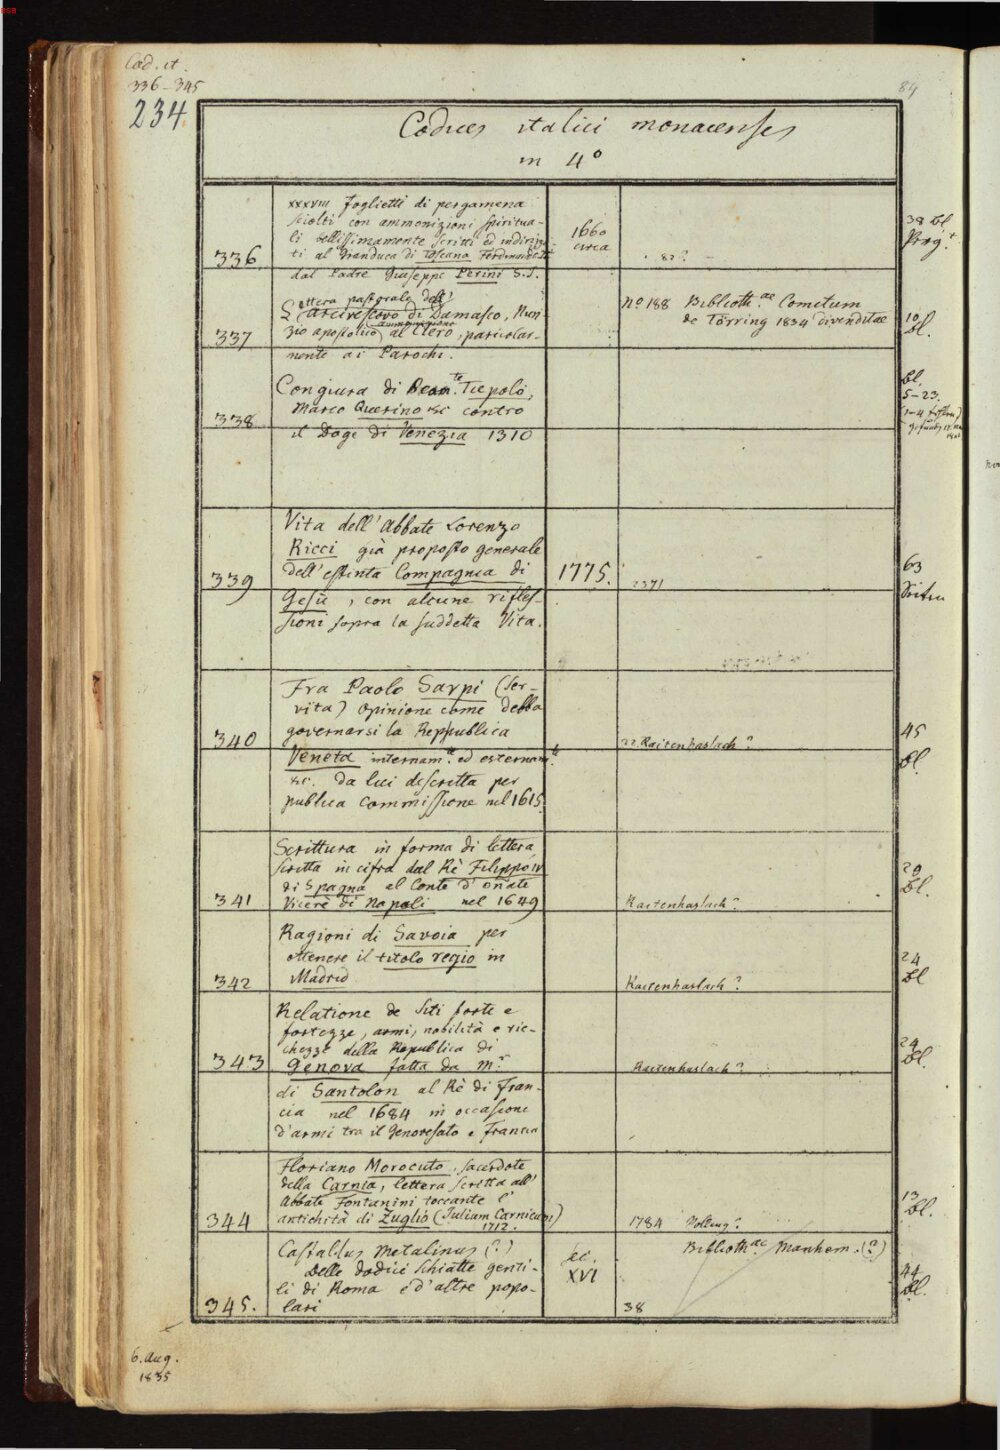 Cod. it.
336–345
234
84
Codices italici monacenses
in 4º
XXXVIII foglietti di pergamena
sciolti con ammonizioni spiritua-
li bellissimamente scritti ed indirizza-
336. ti al Granduca di Toscana Ferdinando II
dal Padre Giuseppe Perini S.J.
1660
circa
82?
38 Bl
Prg.t
Lettera pastorale dell'
Arcivescovo di Damasco, Nun-
ammonizione
337 zio apostolico al Clero, particolar-
mente ai Parochi.
Nº 188 Biblioth.ae Comitum
de Törring 1834 divenditae
10
Bl.
Congiura di Beam.te Tiepolo,
Marco Querino &c contro
338
il Doge di Venezia 1310
Bl.
5–23.
Vita dell'Abbate Lorenzo
Ricci già proposto generale
339 dell'estinta Compagnia di
Gesù, con alcune rifles-
sioni sopra la suddetta Vita.
1775.
2371
63
Seiten
Fra Paolo Sarpi (Ser-
vita) Opinione come debba
340 governarsi la Reppublica
Veneta internam.te ed esternam.te
&c. da lui descritta per
publica commissione nel 1615
22. Raitenhaslach?
45
Bl.
Scrittura in forma di lettera
scritta in cifra dal Rè Filippo IV
di Spagna al Conte d'Oñate
341 Vicerè di Napoli nel 1649
Raitenhaslach?
29
Bl.
Ragioni di Savoia per
ottenere il titolo regio in
342 Madrid
Raitenhaslach?
24
Bl
Relatione de siti forti e
fortezze, armi, nobilità e ric-
chezze della Republica di
343 Genova fatta da M.r
di Santolon al Rè di Fran-
cia nel 1684 in occasione
d'armi tra il Genovesato e Francia
Raitenhaslach?
24
Bl.
Floriano Morocuto, sacerdote
della Carnia, lettera scritta all'
Abbate Fontanini toccante l'
344 antichità di Zuglio (Julium Carnicum)
1712.
1784 Polling?
13
Bl.
Castaldus Metalinus (?)
Delle dodici schiatte genti-
li di Roma e d'altre popo-
345. lari
sec.
XVI
Biblioth.ae Manhem. (?)
38
44
Bl.
6. Aug.
1835